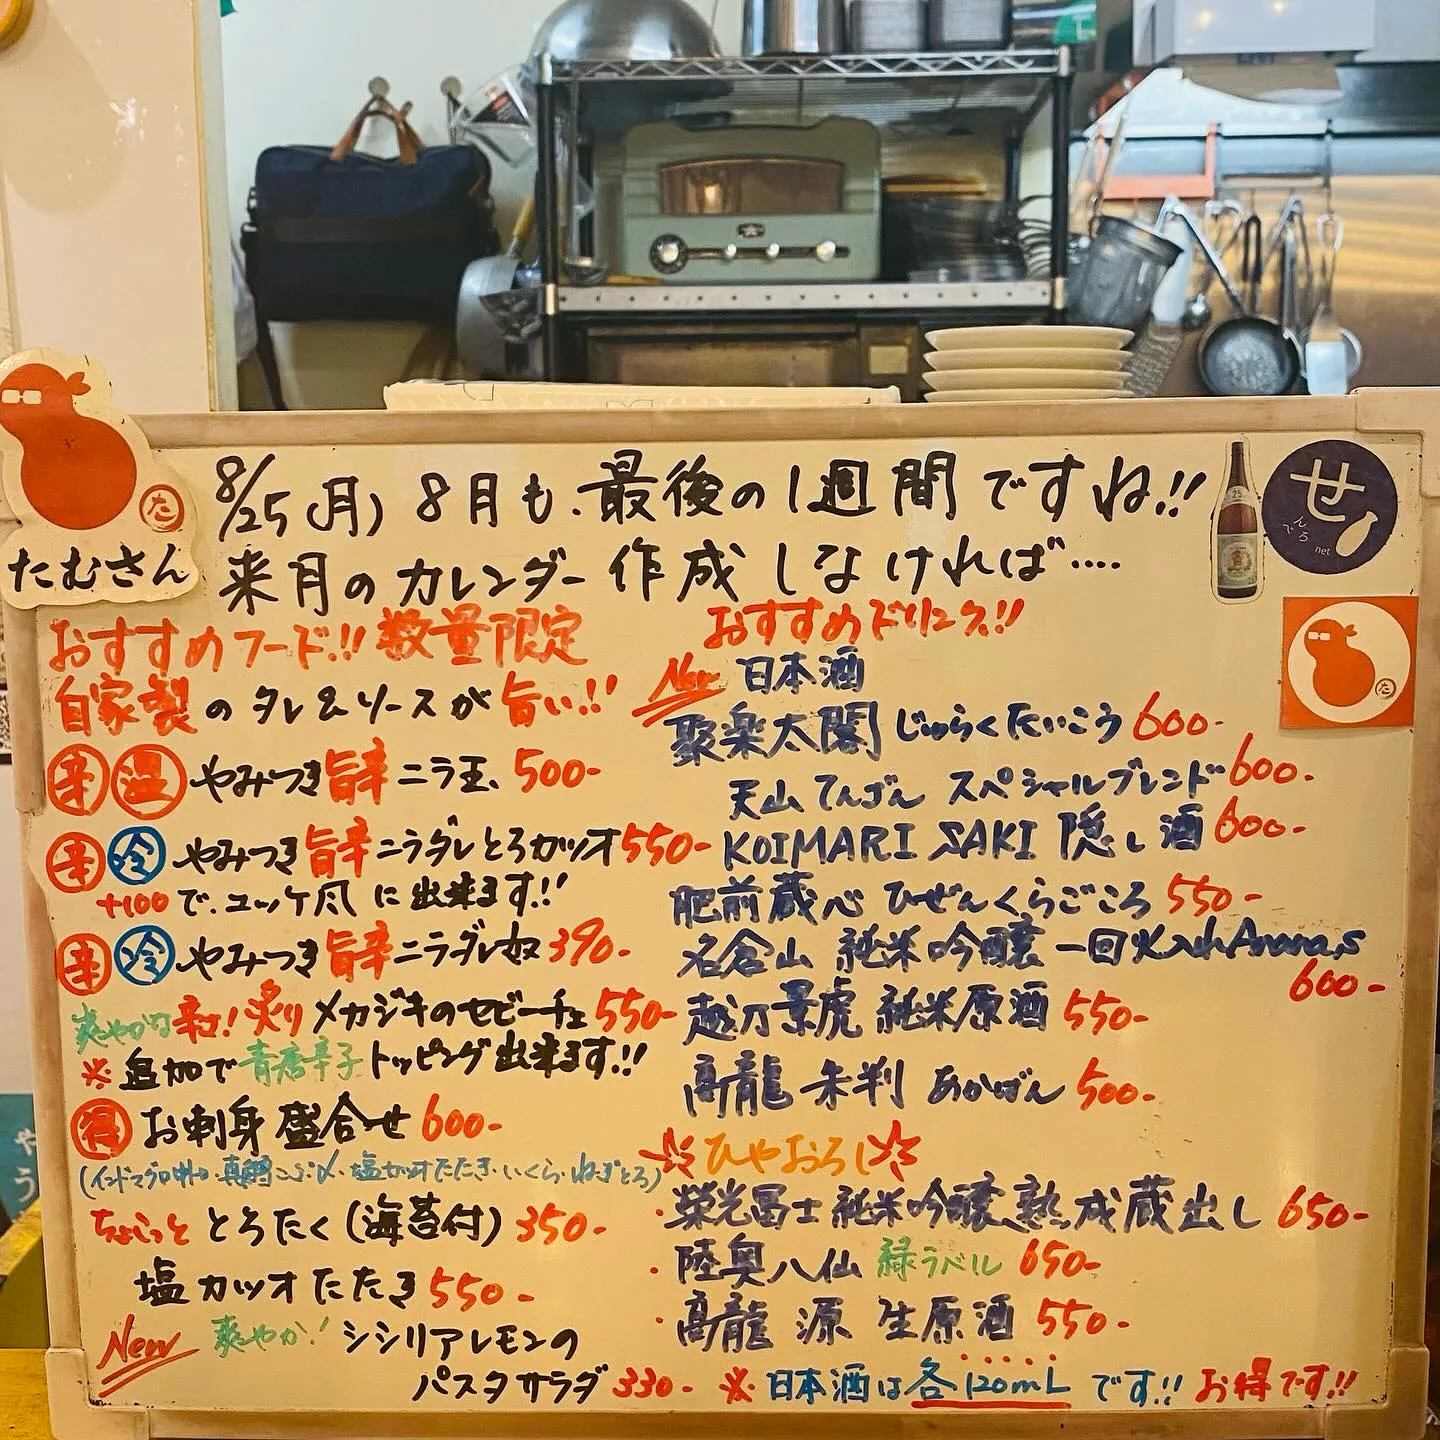 8/25(月) 8月も、最後の1週間ですね!!
来月のカレンダー作成しなければ‥‥
たむさん
た
せ
んべろ
net
おすすめフード!! 数量限定
自家製のタレ&ソースが旨い!!
辛 温 やみつき旨辛ニラ玉、500-
辛 冷 やみつき旨辛ニラダレとろカツオ550-
+100で、ユッケ風に出来ます!!
辛 冷 やみつき旨辛ニラダレ奴390-
爽やかな辛さ!炙りメカジキのセビーチェ550-
※追加で青唐辛子トッピング出来ます!!
得 お刺身盛合せ600-
(インドマグロ中トロ・真鯛こぶ〆・塩カツオたたき・いくら・ねぎとろ)
ちょこっと とろたく(海苔付)350-
塩カツオたたき550-
New 爽やか!シシリアレモンの
パスタサラダ330-
おすすめドリンク!!
New 日本酒
聚楽太閤 じゅらくたいこう600-
天山 てんざん スペシャルブレンド600-
KOIMARI SAKI 隠し酒600-
肥前蔵心 ひぜんくらごころ550-
名倉山 純米吟醸 一回火入れAnanas
600-
越乃景虎 純米原酒550-
高龍 朱判 あかばん500-
ひやおろし
・栄光冨士 純米吟醸 熟成蔵出し650-
・陸奥八仙 緑ラベル650-
・高龍 源 生原酒550-
※日本酒は各120mLです!!お得です!!